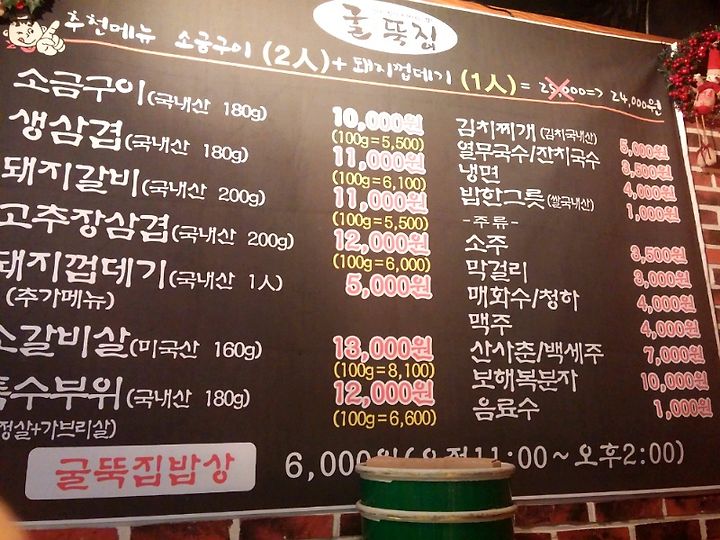 굴뚝집
추천메뉴 소금구이 (2人)+돼지껍데기 (1人)= 25,000=> 24,000원
소금구이(국내산 180g) 10,000원
(100g=5,500)
생삼겹(국내산 180g) 11,000원
(100g=6,100)
돼지갈비(국내산 200g) 11,000원
(100g=5,500)
고추장삼겹(국내산 200g) 12,000원
(100g=6,000)
돼지껍데기(국내산 1人) 5,000원
(추가메뉴)
소갈비살(미국산 160g) 13,000원
(100g=8,100)
특수부위(국내산 180g) 12,000원
(100g=6,600)
정살+가브리살)
김치찌개(김치국내산) 5,000원
열무국수/잔치국수 3,500원
냉면 4,000원
밥한그릇(쌀국내산) 1,000원
-주류-
소주 3,500원
막걸리 3,000원
매화수/청하 4,000원
맥주 4,000원
산사춘/백세주 7,000원
보해복분자 10,000원
음료수 1,000원
굴뚝집밥상 6,000원(오전11:00~오후2:00)